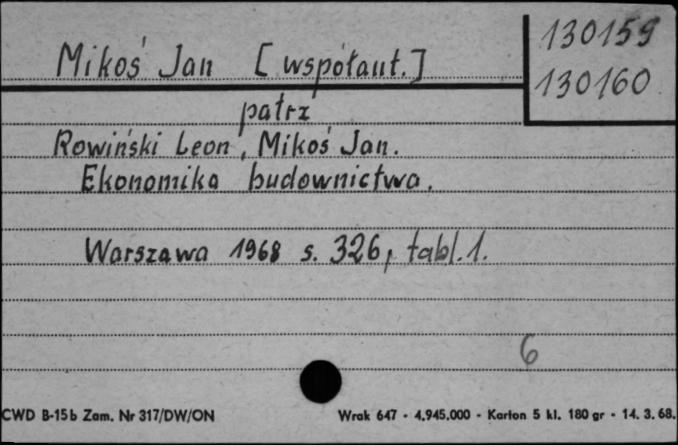 130159
Mikoś Jan [współaut.]
130160
patrz
Rowiński Leon, Mikoś Jan.
Ekonomika budownictwa.
Warszawa 1968 s. 326, tabl. 1.
6
CWD B-15b Zam. Nr 317/DW/ON Wrak 647 - 4.945.000 - Karton 5 kl. 180 gr - 14. 3. 68.